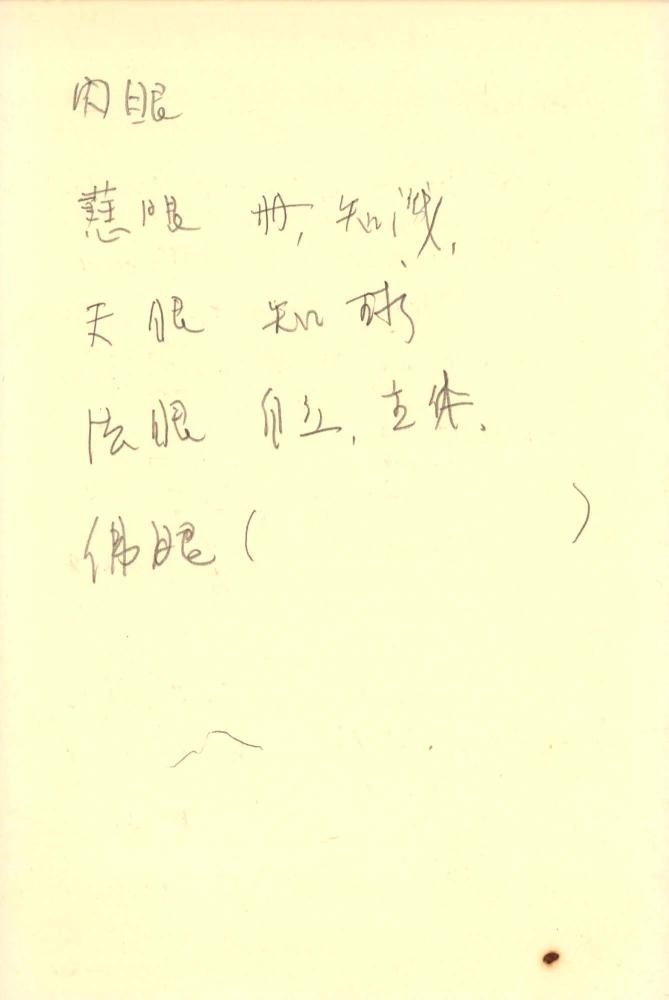 肉眼
慧眼 冊, 知識,
天眼 知球
法眼 自立, 主体,
佛眼 ( )